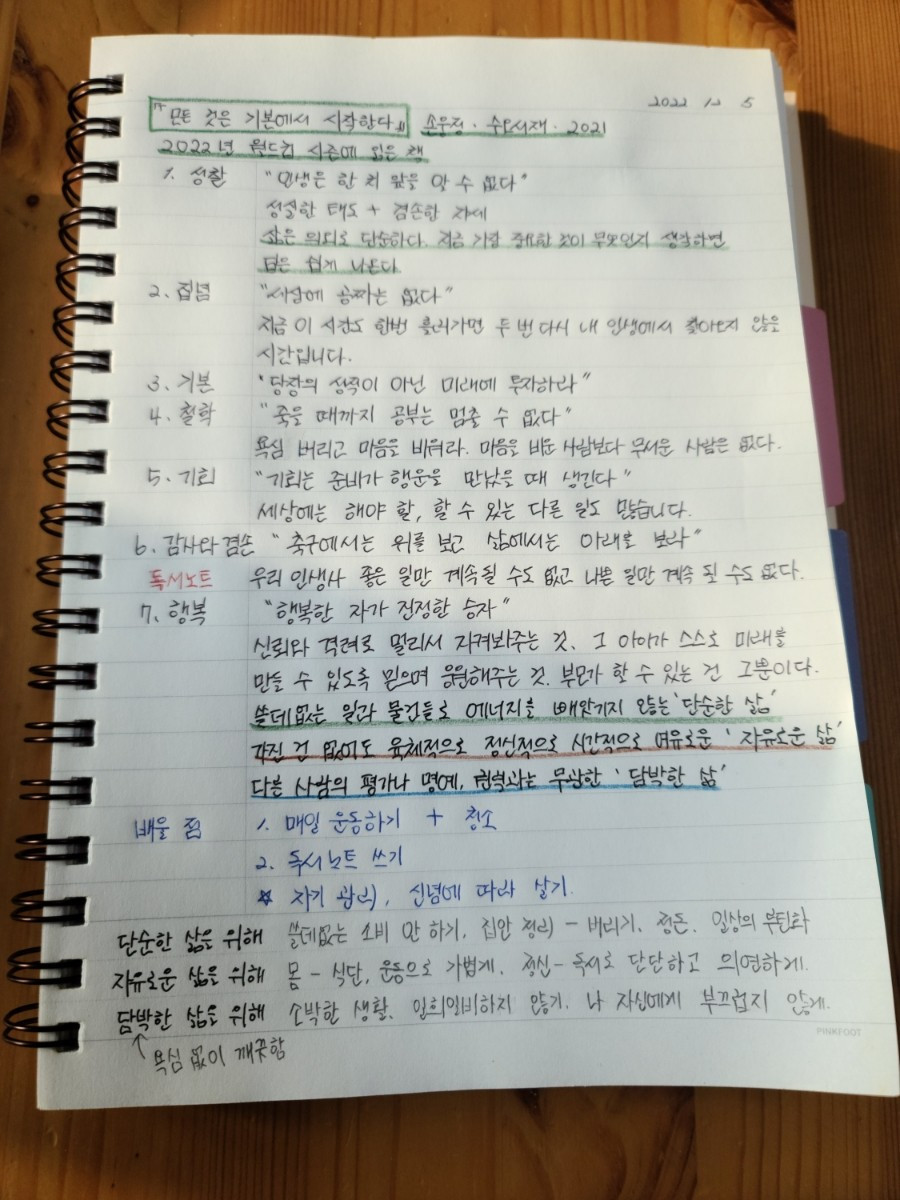 2022 12 5
『모든 것은 기본에서 시작한다』 손웅정 · 수오서재 · 2021
2022년 월드컵 시즌에 읽은 책
1. 성찰 "인생은 한 치 앞을 알 수 없다"
성실한 태도 + 겸손한 자세
삶은 의외로 단순하다. 지금 가장 중요한 것이 무엇인지 생각하면
답은 쉽게 나온다
2. 집념 "세상에 공짜는 없다"
지금 이 시간도 한번 흘러가면 두 번 다시 내 인생에서 찾아오지 않을
시간입니다.
3. 기본 "당장의 성적이 아닌 미래에 투자하라"
4. 철학 "죽을 때까지 공부는 멈출 수 없다"
욕심 버리고 마음을 비워라. 마음을 비운 사람보다 무서운 사람은 없다.
5. 기회 "기회는 준비가 행운을 만났을 때 생긴다"
세상에는 해야 할, 할 수 있는 다른 일도 많습니다.
6. 감사와 겸손 "축구에서는 위를 보고 삶에서는 아래를 보라"
독서노트 우리 인생사 좋은 일만 계속될 수도 없고 나쁜 일만 계속 될 수도 없다.
7. 행복 "행복한 자가 진정한 승자"
신뢰와 격려로 멀리서 지켜봐주는 것. 그 아이가 스스로 미래를
만들 수 있도록 믿으며 응원해주는 것. 부모가 할 수 있는 건 그뿐이다.
쓸데없는 일과 물건들로 에너지를 빼앗기지 않는 '단순한 삶'
가진 건 없어도 육체적으로 정신적으로 시간적으로 여유로운 '자유로운 삶'
다른 사람의 평가나 명예, 권력과는 무관한 '담박한 삶'
배울 점 1. 매일 운동하기 + 청소
2. 독서노트 쓰기
☆ 자기 관리, 신념에 따라 살기.
단순한 삶을 위해 쓸데없는 소비 안 하기, 집안 정리 - 버리기, 정돈. 일상의 루틴화
자유로운 삶을 위해 몸 - 식단, 운동으로 가볍게. 정신 - 독서로 단단하고 의연하게.
담박한 삶을 위해 소박한 생활. 일희일비하지 않기. 나 자신에게 부끄럽지 않게.
↑ 욕심 없이 깨끗함
PINKFOOT